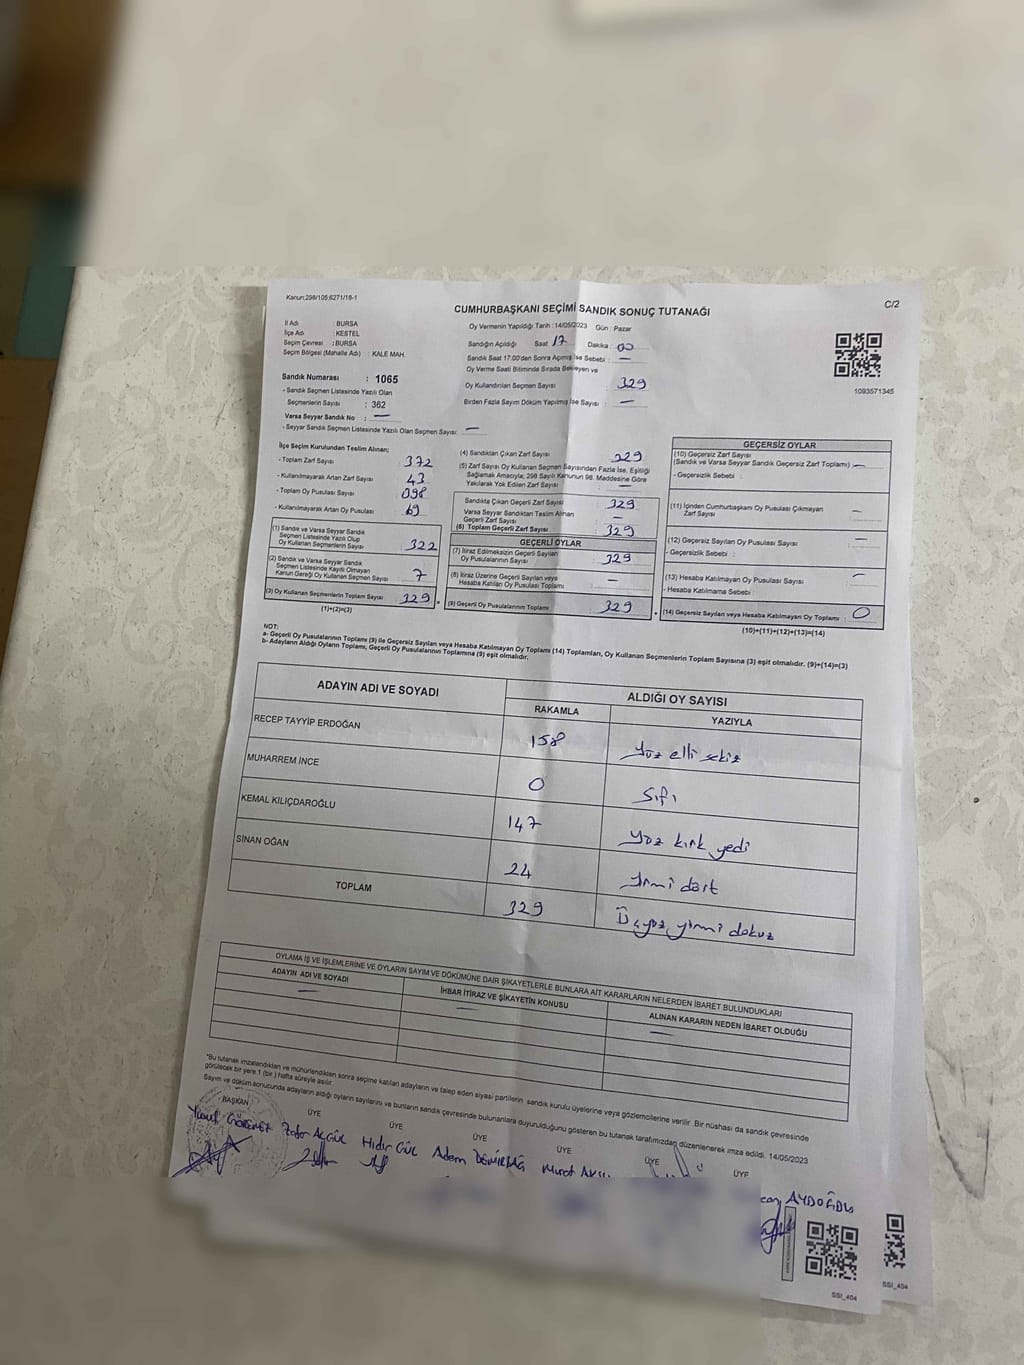 Kanun:298/105;6271/18-1
C/2
CUMHURBAŞKANI SEÇİMİ SANDIK SONUÇ TUTANAĞI
İl Adı : BURSA
İlçe Adı : KESTEL
Seçim Çevresi : BURSA
Seçim Bölgesi (Mahalle Adı) : KALE MAH.
Sandık Numarası : 1065
- Sandık Seçmen Listesinde Yazılı Olan
Seçmenlerin Sayısı : 362
Varsa Seyyar Sandık No : —
- Seyyar Sandık Seçmen Listesinde Yazılı Olan Seçmen Sayısı: —
Oy Vermenin Yapıldığı Tarih : 14/05/2023 Gün : Pazar
Sandığın Açıldığı Saat 17 Dakika : 00
Sandık Saat 17:00'den Sonra Açılmış İse Sebebi : —
Oy Verme Saati Bitiminde Sırada Bekleyen ve
Oy Kullandırılan Seçmen Sayısı 329
Birden Fazla Sayım Döküm Yapılmış İse Sayısı : —
1093571345
İlçe Seçim Kurulundan Teslim Alınan;
- Toplam Zarf Sayısı 372
- Kullanılmayarak Artan Zarf Sayısı 43
- Toplam Oy Pusulası Sayısı 398
- Kullanılmayarak Artan Oy Pusulası 69
(1) Sandık ve Varsa Seyyar Sandık
Seçmen Listesinde Yazılı Olup
Oy Kullanan Seçmenlerin Sayısı 322
(2) Sandık ve Varsa Seyyar Sandık
Seçmen Listesinde Kayıtlı Olmayan
Kanun Gereği Oy Kullanan Seçmen Sayısı 7
(3) Oy Kullanan Seçmenlerin Toplam Sayısı 329
(1)+(2)=(3)
(4) Sandıktan Çıkan Zarf Sayısı 329
(5) Zarf Sayısı Oy Kullanan Seçmen Sayısından Fazla İse, Eşitliği
Sağlamak Amacıyla; 298 Sayılı Kanunun 98. Maddesine Göre
Yakılarak Yok Edilen Zarf Sayısı —
Sandıkta Çıkan Geçerli Zarf Sayısı 329
Varsa Seyyar Sandıktan Teslim Alınan
Geçerli Zarf Sayısı —
(6) Toplam Geçerli Zarf Sayısı 329
GEÇERLİ OYLAR
(7) İtiraz Edilmeksizin Geçerli Sayılan
Oy Pusulalarının Sayısı 329
(8) İtiraz Üzerine Geçerli Sayılan veya
Hesaba Katılan Oy Pusulası Toplamı —
(9) Geçerli Oy Pusulalarının Toplamı 329
GEÇERSİZ OYLAR
(10) Geçersiz Zarf Sayısı
(Sandık ve Varsa Seyyar Sandık Geçersiz Zarf Toplamı) —
- Geçersizlik Sebebi :
(11) İçinden Cumhurbaşkanı Oy Pusulası Çıkmayan
Zarf Sayısı —
(12) Geçersiz Sayılan Oy Pusulası Sayısı —
- Geçersizlik Sebebi :
(13) Hesaba Katılmayan Oy Pusulası Sayısı —
- Hesaba Katılmama Sebebi
(14) Geçersiz Sayılan veya Hesaba Katılmayan Oy Toplamı : 0
(10)+(11)+(12)+(13)=(14)
NOT:
a- Geçerli Oy Pusulalarının Toplamı (9) ile Geçersiz Sayılan veya Hesaba Katılmayan Oy Toplamı (14) Toplamları, Oy Kullanan Seçmenlerin Toplam Sayısına (3) eşit olmalıdır. (9)+(14)=(3)
b- Adayların Aldığı Oyların Toplamı, Geçerli Oy Pusulalarının Toplamına (9) eşit olmalıdır.
ADAYIN ADI VE SOYADI
ALDIĞI OY SAYISI
RAKAMLA YAZIYLA
RECEP TAYYİP ERDOĞAN 158 Yüz elli sekiz
MUHARREM İNCE 0 Sıfı
KEMAL KILIÇDAROĞLU 147 Yüz kırk yedi
SİNAN OĞAN 24 Yirmi dört
TOPLAM 329 Üçyüz yirmi dokuz
OYLAMA İŞ VE İŞLEMLERİNE VE OYLARIN SAYIM VE DÖKÜMÜNE DAİR ŞİKAYETLERLE BUNLARA AİT KARARLARIN NELERDEN İBARET BULUNDUKLARI
ADAYIN ADI VE SOYADI İHBAR İTİRAZ VE ŞİKAYETİN KONUSU ALINAN KARARIN NEDEN İBARET OLDUĞU
— — —
"Bu tutanak imzalandıktan ve mühürlendikten sonra seçime katılan adayların ve talep eden siyasi partilerin sandık kurulu üyelerine veya gözlemcilerine verilir. Bir nüshası da sandık çevresinde
görülecek bir yere 1 (bir) hafta süreyle asılır.
Sayım ve döküm sonucunda adayların aldığı oyların sayılarını ve bunların sandık çevresinde bulunanlara duyurulduğunu gösteren bu tutanak tarafımızdan düzenlenerek imza edildi. 14/05/2023
BAŞKAN ÜYE ÜYE ÜYE ÜYE ÜYE ÜYE
Hıdır GÜL
Adem DEMİRDAĞ
Murat
AYDOĞDU
SSI_404
SSI_404